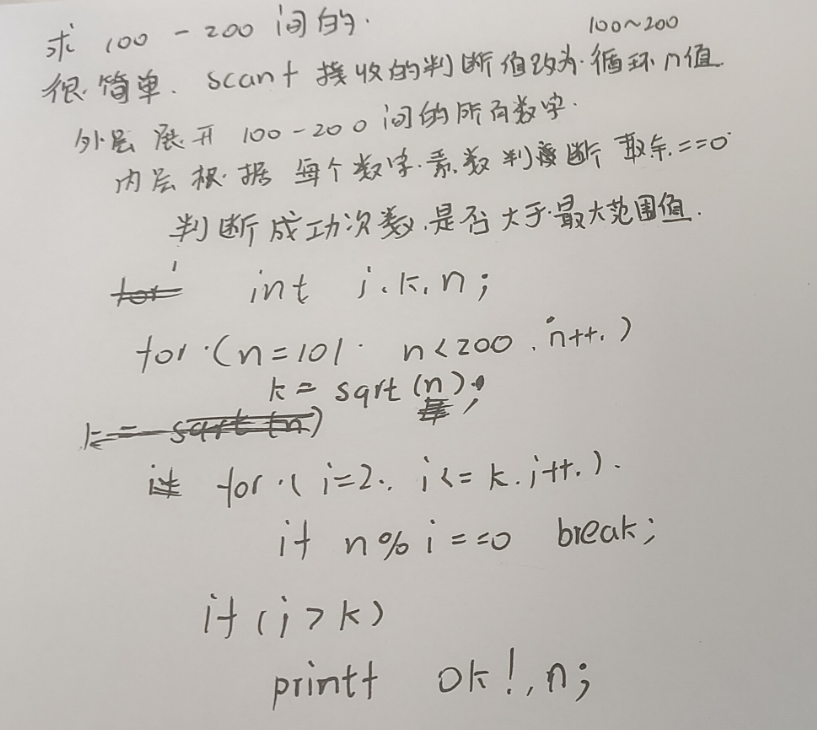 求 100-200 间的.
很简单. scanf 接收的判断值改为 循环 n值
100~200
外层展开 100-200 间的所有数字.
内层根据 每个数字.素数判断 取余.==0
判断成功次数.是否大于.最大范围值.
for int i.k.n;
for (n=101. n<200. n++.)
k = sqrt(n);
k = sqrt(n)
for ( i=2.. i<= k. i++.).
if n%i==0 break;
if (i>k)
printf ok!,n;